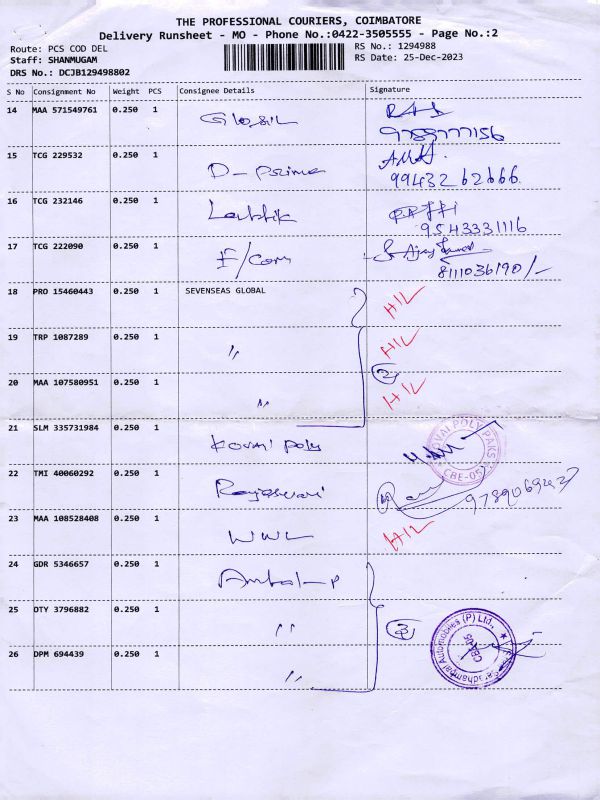 THE PROFESSIONAL COURIERS, COIMBATORE
Delivery Runsheet - MO - Phone No.:0422-3505555 - Page No.:2
Route: PCS COD DEL
RS No.: 1294988
Staff: SHANMUGAM
RS Date: 25-Dec-2023
DRS No.: DCJB129498802
S No Consignment No Weight PCS Consignee Details Signature
14 MAA 571549761 0.250 1
15 TCG 229532 0.250 1 D-prime
99432 62666
16 TCG 232146 0.250 1
9543331116
17 TCG 222090 0.250 1 F/com
8111036190/-
18 PRO 15460443 0.250 1 SEVENSEAS GLOBAL HIL
19 TRP 1087289 0.250 1 " HIL
20 MAA 107580951 0.250 1 " HIL
21 SLM 335731984 0.250 1 Kovai poly
KOVAI POLY PAKS
CBE-05
22 TMI 40060292 0.250 1 Rajeswari
23 MAA 108528408 0.250 1 WWL HIL
24 GDR 5346657 0.250 1
25 OTY 3796882 0.250 1 " 3
26 DPM 694439 0.250 1 "
Automobiles (P) Ltd.,